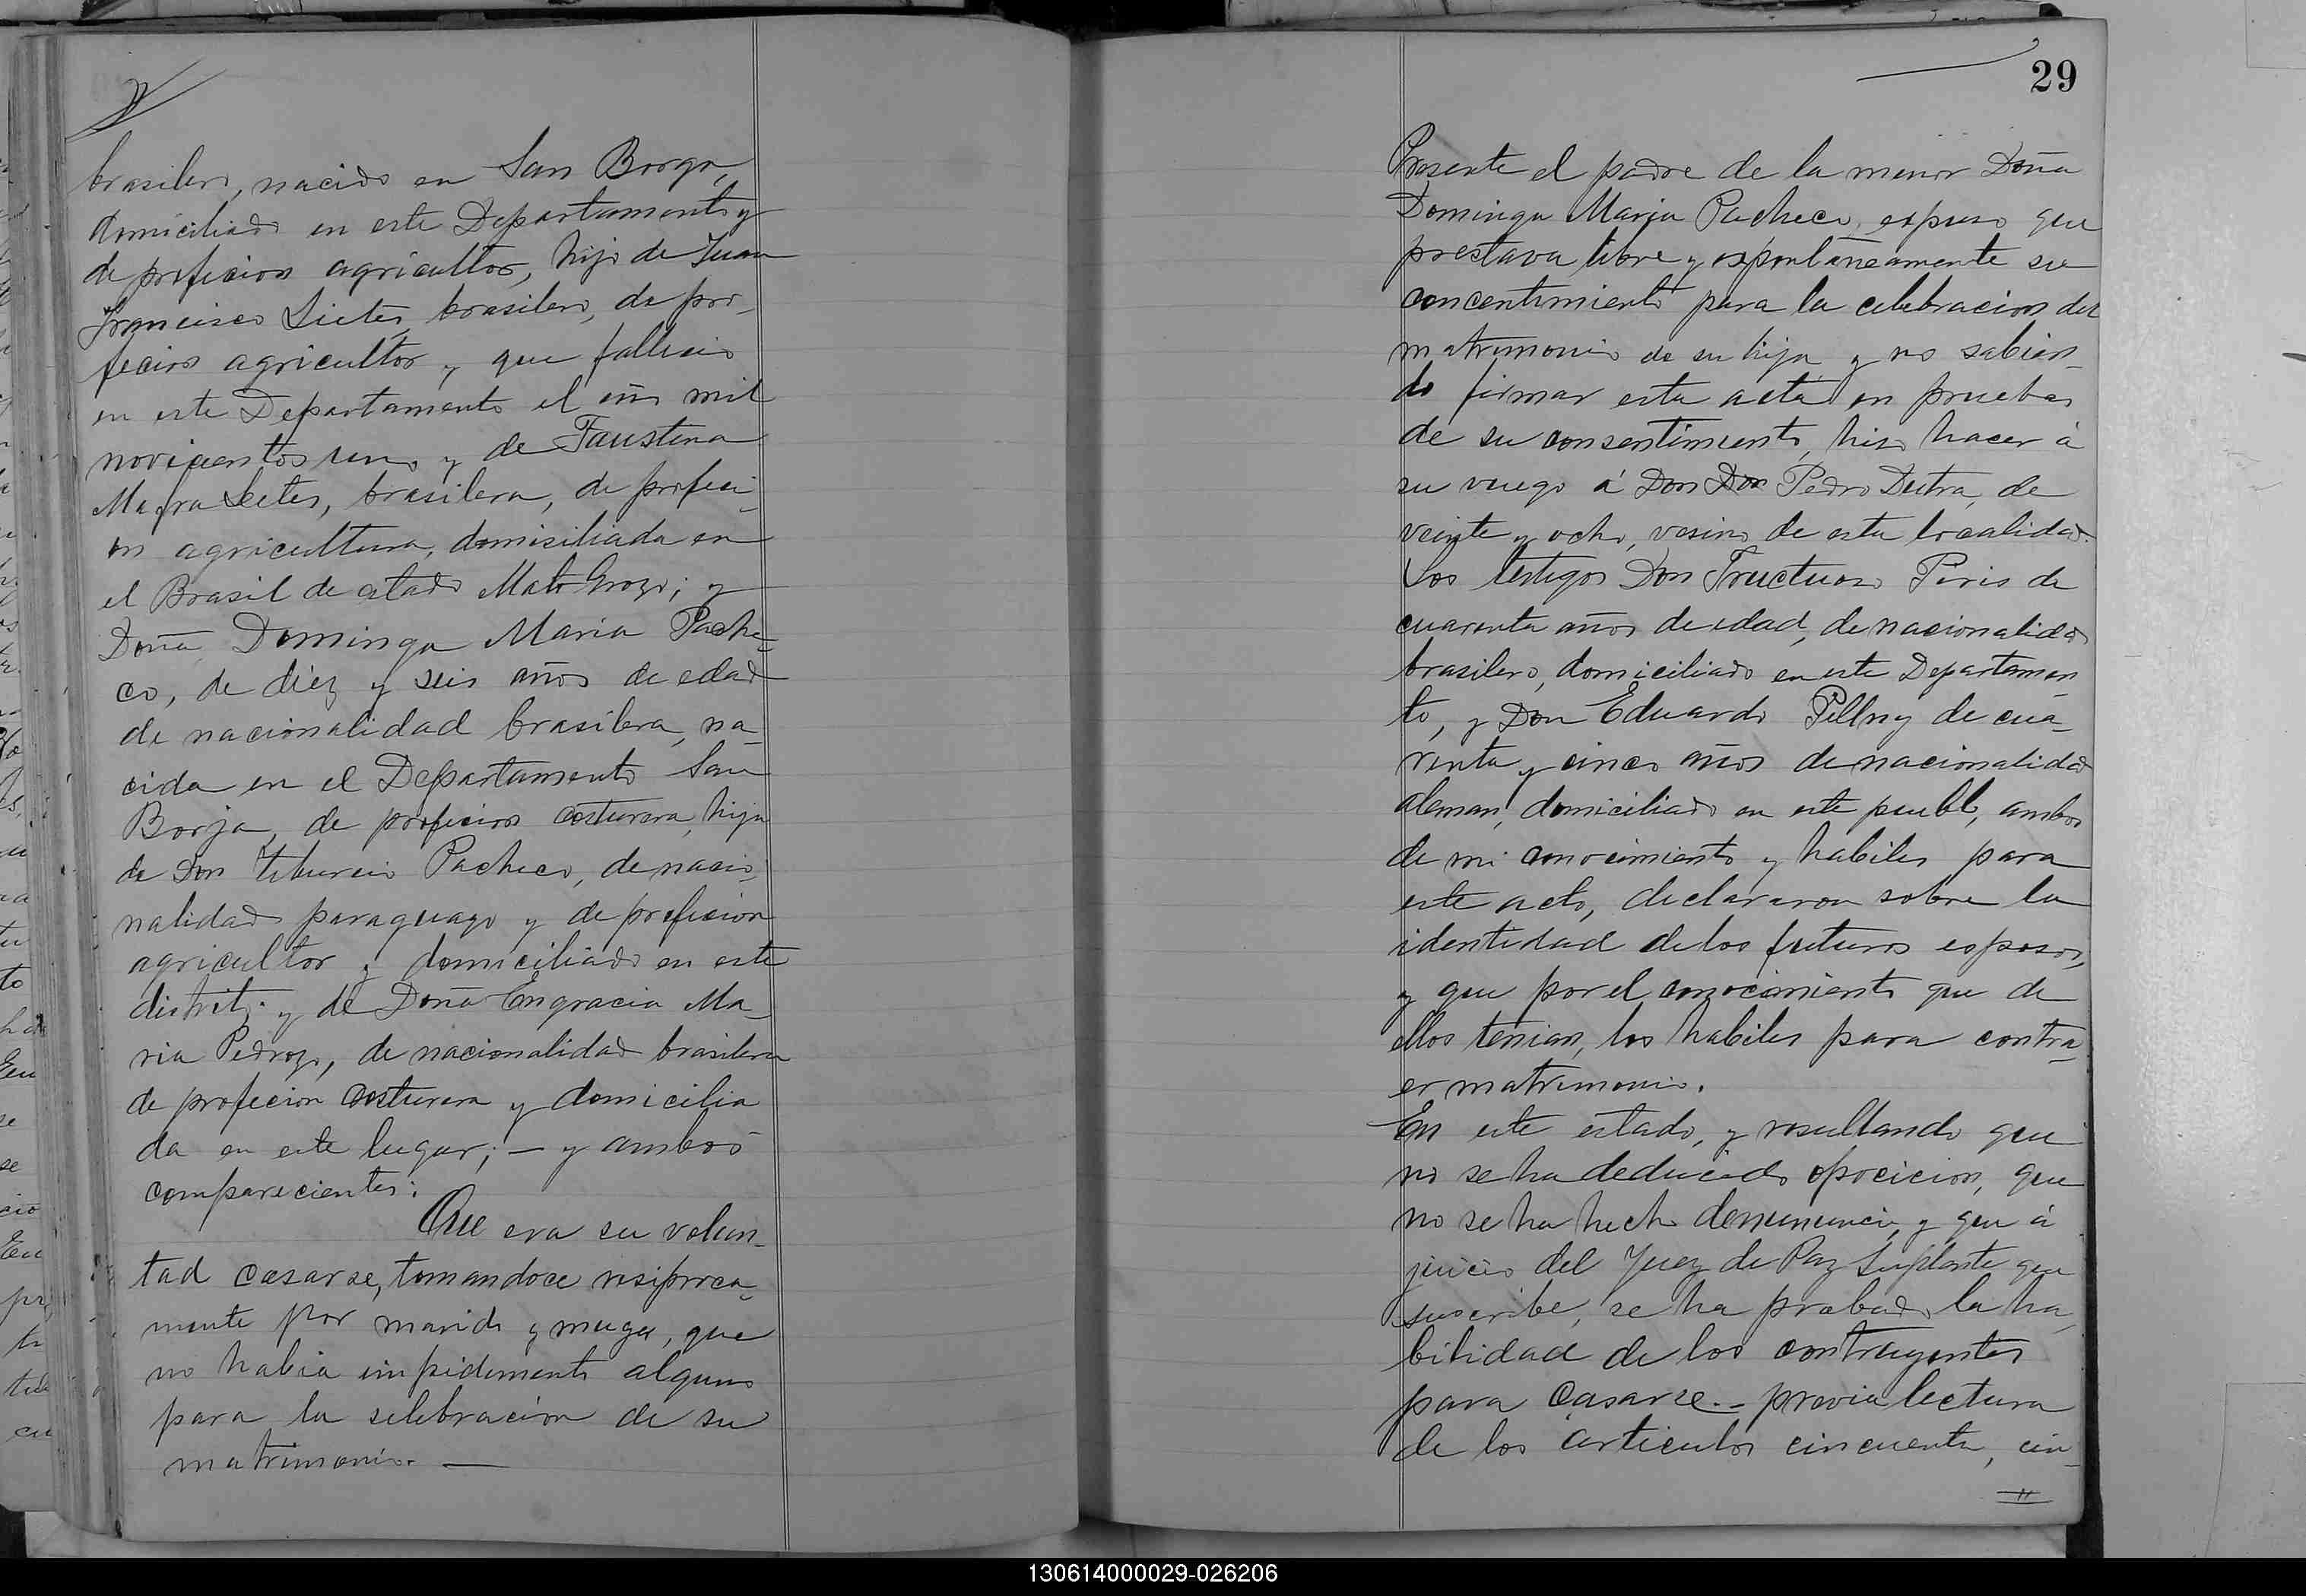 brasilero, nacido en San Borga,
domiciliado en este Departamento y
de profecion agricultor, hijo de Juan
Francisco Lietes, brasilero, de pro-
fecion agricultor y que fallecio
en este Departamento el año mil
novicientos uno y de Faustina
Leites, brasilera, de profeci-
on agricultura, domisiliada en
el Brasil de estado Mato Grozo; y
Doña Dominga Maria Pache-
co, de diez y seis años de edad
de nacionalidad brasilera, na-
cida en el Departamento San
Borja, de profecion costurera, hija
de Don Tiburcio Pacheco, de nacio-
nalidad paraguayo y de profecion
agricultor y domiciliado en este
distrito; y de Doña Engracia Ma-
ria Pedrozo, de nacionalidad brasilera
de profecion costurera y domicilia
da en este lugar; — y ambos
comparecientes:
Que era su volun-
tad casarse, tomandoce resiproca-
mente por marido y muger, que
no habia impidimento alguno
para la selebracion de su
matrimonio. —
29
Presente el padre de la menor Doña
Dominga Maria Pacheco, expuso que
prestava libre y espontaneamente su
concentimiento para la celebracion del
matrimonio de su hija y no sabien-
do firmar esta acta en prueba
de su consentimiento, hiso hacer á
su ruego á Don Don Pedro Dutra, de
veinte y ocho, vesino de esta localidad.
Los testigos Don Fructuoso Piris de
cuarenta años de edad, de nacionalidad
brasilero, domiciliado en este Departamen
to, y Don Eduardo Pillny de cua-
renta y cinco años de nacionalidad
aleman, domiciliado en este pueblo, ambos
de mi conocimiento y habiles para
este acto, declararon sobre la
identidad de los futuros esposos,
y que por el conocimiento que de
ellos tenian, los habiles para contra-
er matrimonio.
En este estado, y resultando que
no se ha deducido oposicion, que
no se ha hecho denununcia, y que á
juicio del Juez de Paz Suplente que
suscribe, se ha probado la ha-
bilidad de los contrayentes
para casarse.- previa lectura
de los articulos cincuenta, cin-
130614000029-026206